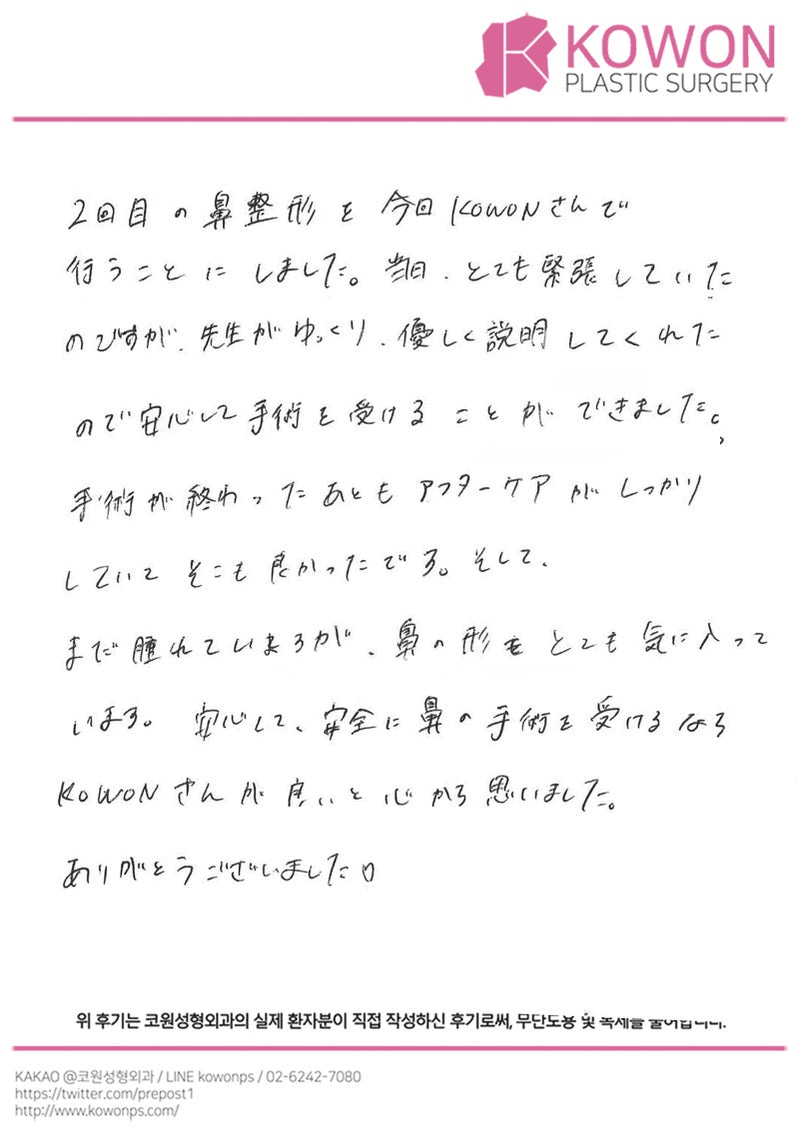 KOWON
PLASTIC SURGERY
2回目の鼻整形を今回KOWONさんで
行うことにしました。当日、とても緊張していた
のですが、先生がゆっくり、優しく説明してくれた
ので安心して手術を受けることができました。
手術が終わったあともアフターケアがしっかり
していてそこも良かったです。そして、
まだ腫れていますが、鼻の形もとても気に入って
います。安心して、安全に鼻の手術を受けるなら
KOWONさんが良いと心から思いました。
ありがとうございました
위 후기는 코원성형외과의 실제 환자분이 직접 작성하신 후기로써, 무단도용 및 복제를 불허합니다.
KAKAO @코원성형외과 / LINE kowonps / 02-6242-7080
https://twitter.com/prepost1
http://www.kowonps.com/